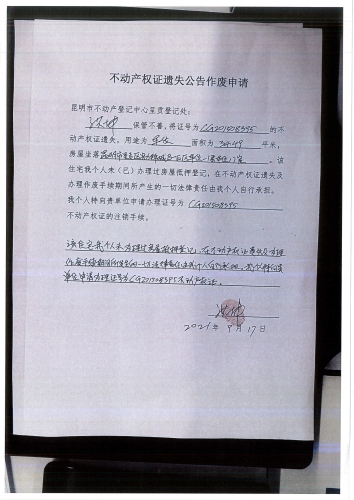 不动产权证遗失公告作废申请
昆明市不动产登记中心呈贡登记处:
保管不善,将证号为 CG201508595 的不
动产权证遗失。用途为 住 面积为 307.49 平米,
房屋坐落 昆明市呈贡区 室。该
住宅我个人未(已)办理过房屋抵押登记,在不动产权证遗失及
办理作废手续期间所产生的一切法律责任由我个人自行承担。
我个人特向贵单位申请办理证号为 CG201508595
不动产权证的注销手续。
该住宅我个人未办理过房屋抵押登记,在不动产权证遗失及办理
作废手续期间所产生的一切法律责任由我个人自行承担。我个人特向贵
单位申请办理证号为CG201508595不动产权证。
2021年9月17日